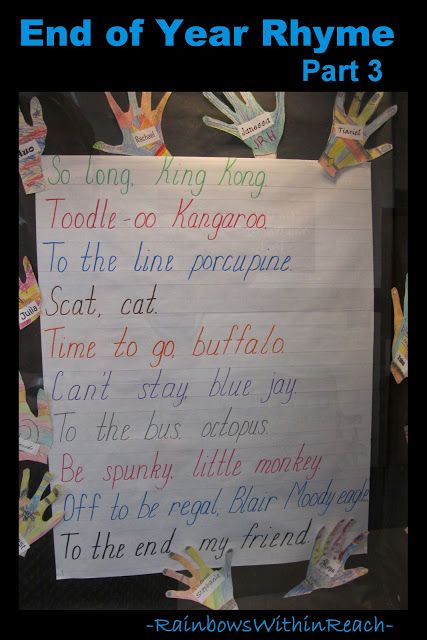 End of Year Rhyme
Part 3
Rachael
Janessa
JRH
Tianiel
So long, King Kong.
Toodle-oo Kangaroo.
To the line porcupine.
Scat, cat.
Julia
Time to go, buffalo.
Can't stay, blue jay.
To the bus, octopus.
Be spunky, little monkey.
Off to be regal, Blair Moody eagle.
To the end, my friend.
Stephanie
-RainbowsWithinReach-